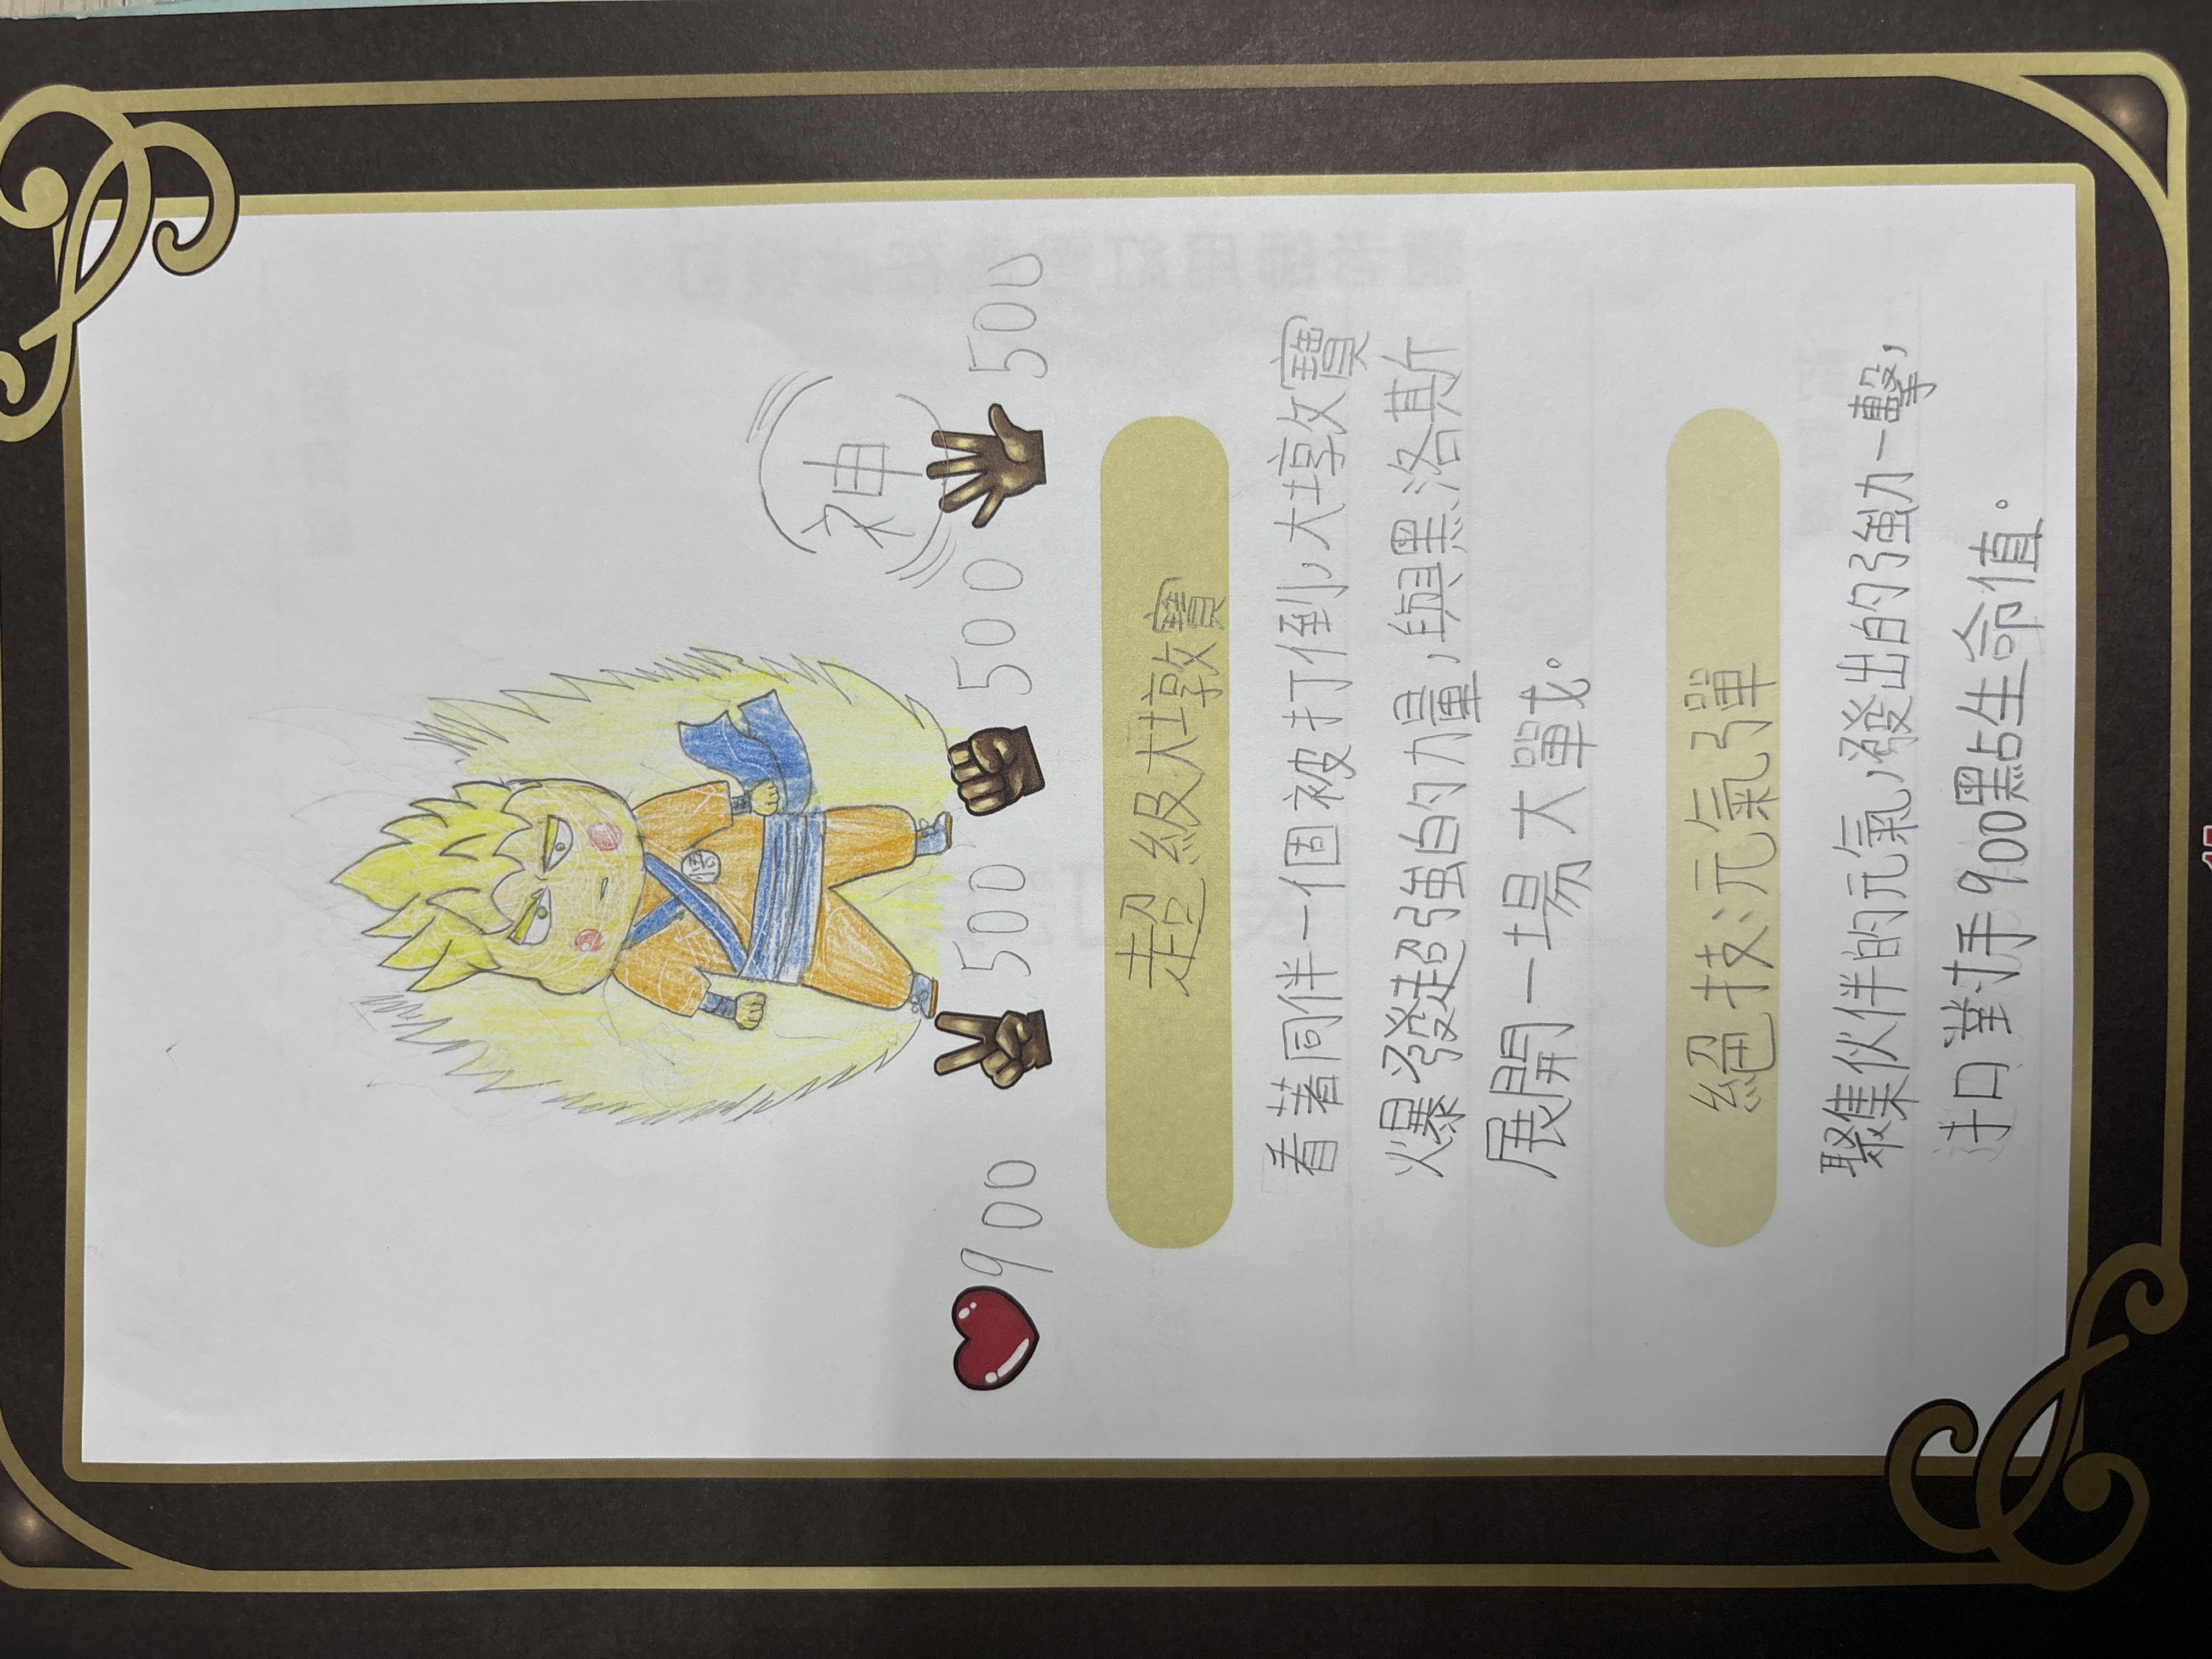 神
900 500 500 500
超級大墩寶
看著同伴一個個被打倒,大墩寶
爆發超強的力量,與黑洛斯
展開一場大單戈。
絕技:元氣彈
聚集伙伴的元氣,發出的強力一擊,
扣對手900點生命值。